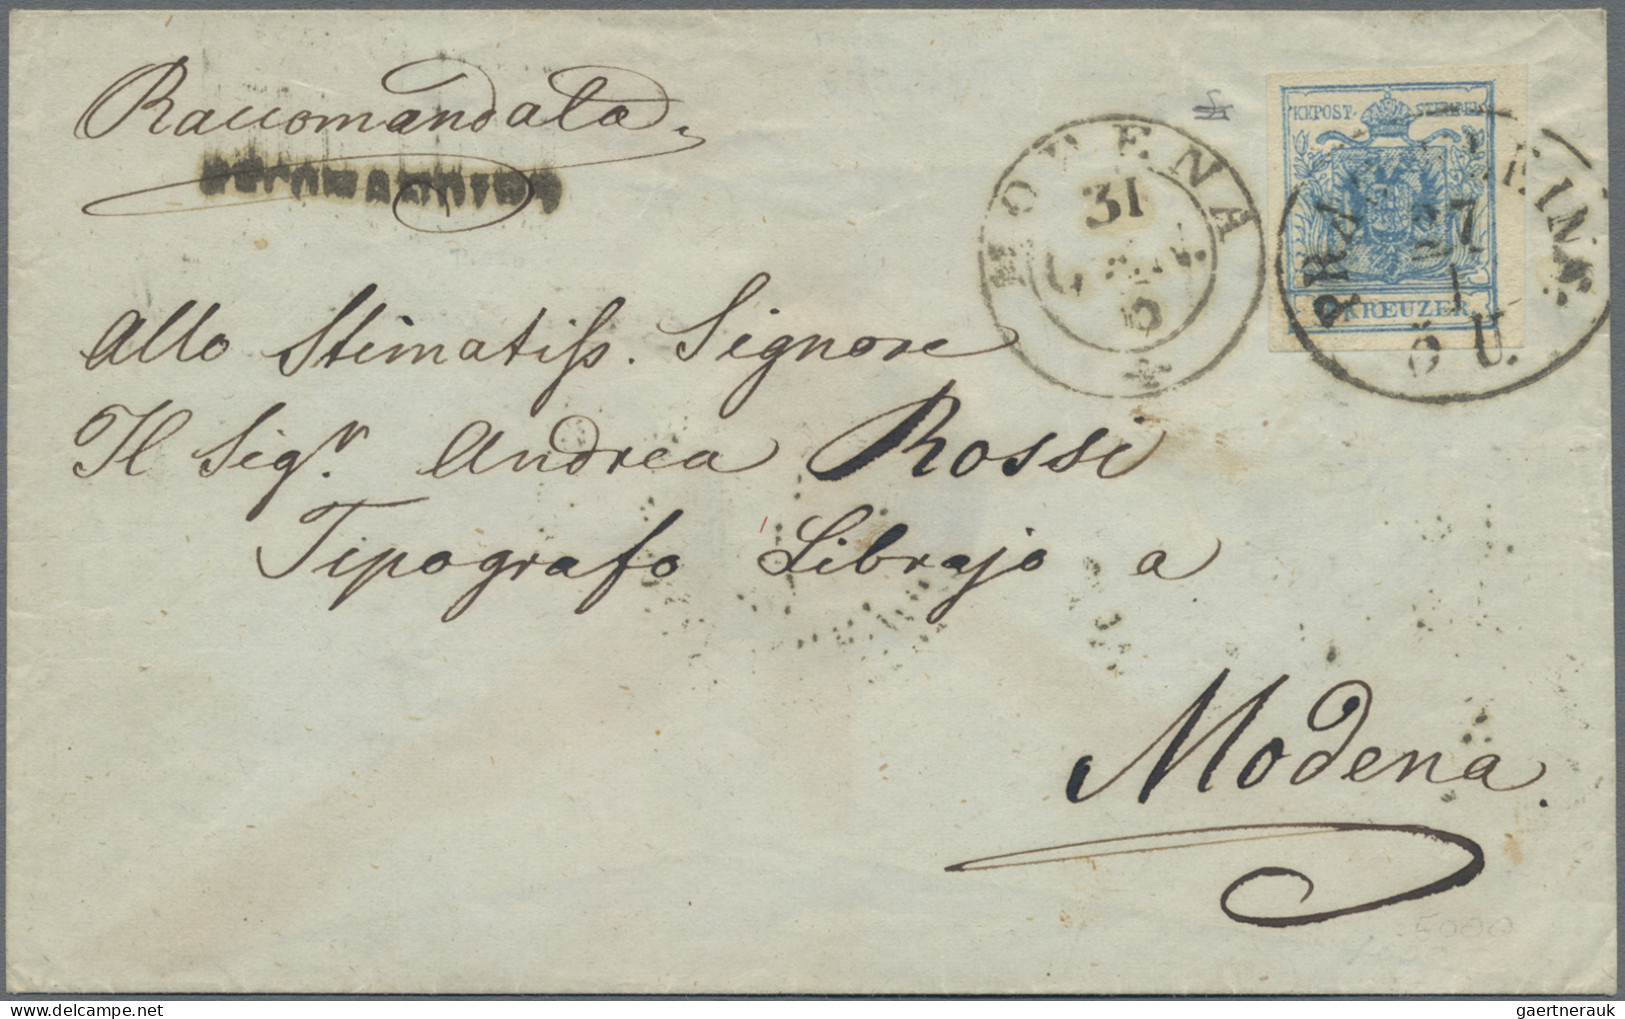 Raccomandata
RECOMANDIRT
MODENA
31
GEN.
KKPOST-STEMPEL
9 KREUZER
27
1
5 U.
Allo Stimatiss. Signore
Il Sigr. Andrea Rossi
Tipografo Librajo a
Modena.
5000
gaertnerauk